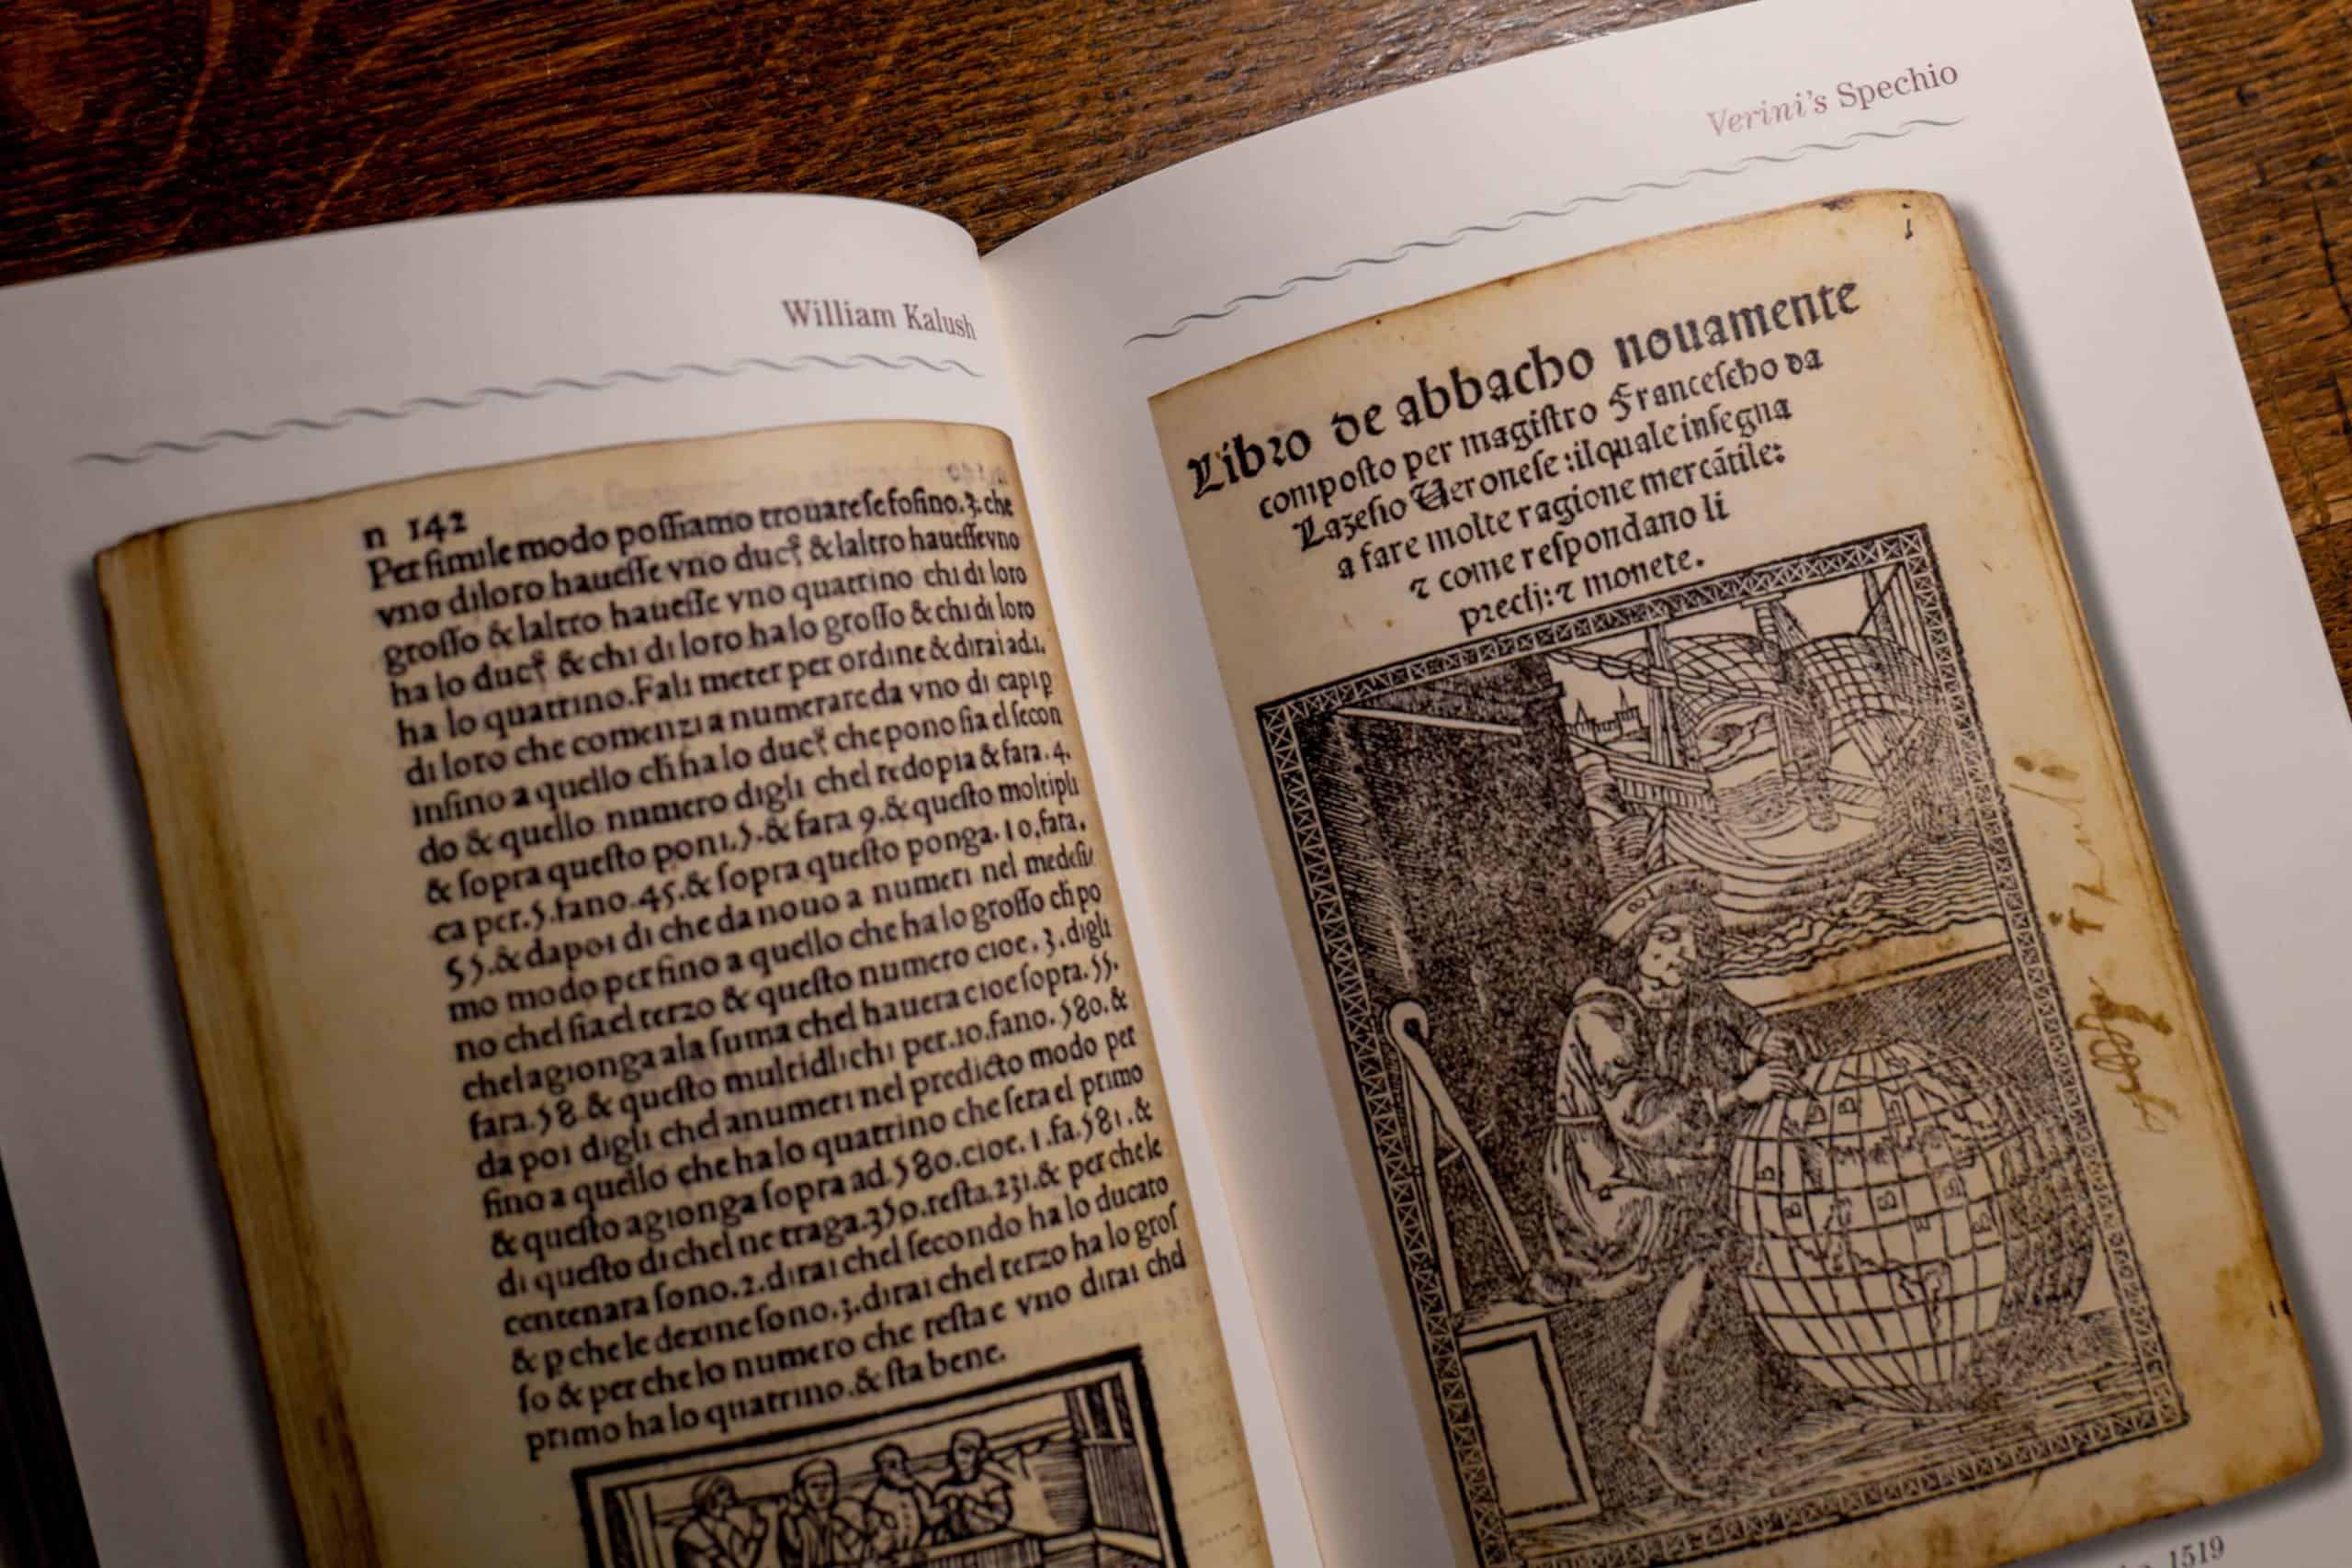 William Kalush
n 142
Per simile modo possiamo trouare se fosino.3. che
vno diloro hauesse vno ducť & laltro hauesse vno
grosso & laltro hauesse vno quattrino chi di loro
ha lo ducť & chi di loro ha lo grosso & chi di loro
ha lo quattrino. Fali meter per ordine & dirai ad.1.
di loro che comenzi a numerare da vno di capi p
infino a quello ch̄ ha lo ducť che pono sia el secon
do & quello numero digli chel redopia & fara.4.
& sopra questo poni.5.& fara 9.& questo moltipli
ca per.5.fano.45.& sopra questo ponga.10.fara.
55.& dapoi di che da nouo a numeri nel medesi
mo modo perfino a quello che ha lo grosso ch̄ po
no chel sia el terzo & questo numero cioe.3.digli
chel agionga ala suma chel hauera cioe sopra.55.
fara.58.& questo multidlichi per.10.fano.580.&
da poi digli chel anumeri nel predicto modo per
fino a quello che ha lo quattrino che sera el primo
& questo agionga sopra ad.580.cioe.1.fa.581.&
di questo di chel ne traga.350.resta.231.& perche le
centenara sono.2.dirai chel secondo ha lo ducato
& p che le dexine sono.3.dirai chel terzo ha lo gros
so & per che lo numero che resta e vno dirai chel
primo ha lo quatrino.& sta bene.
Verini's Spechio
Libro de abbacho nouamente
composto per magistro Francescho da
Lazesio Veronese :ilquale insegna
a fare molte ragione mercātile:
⁊ come respondano li
precij:⁊ monete.
B
B
B
B
B
B
1519